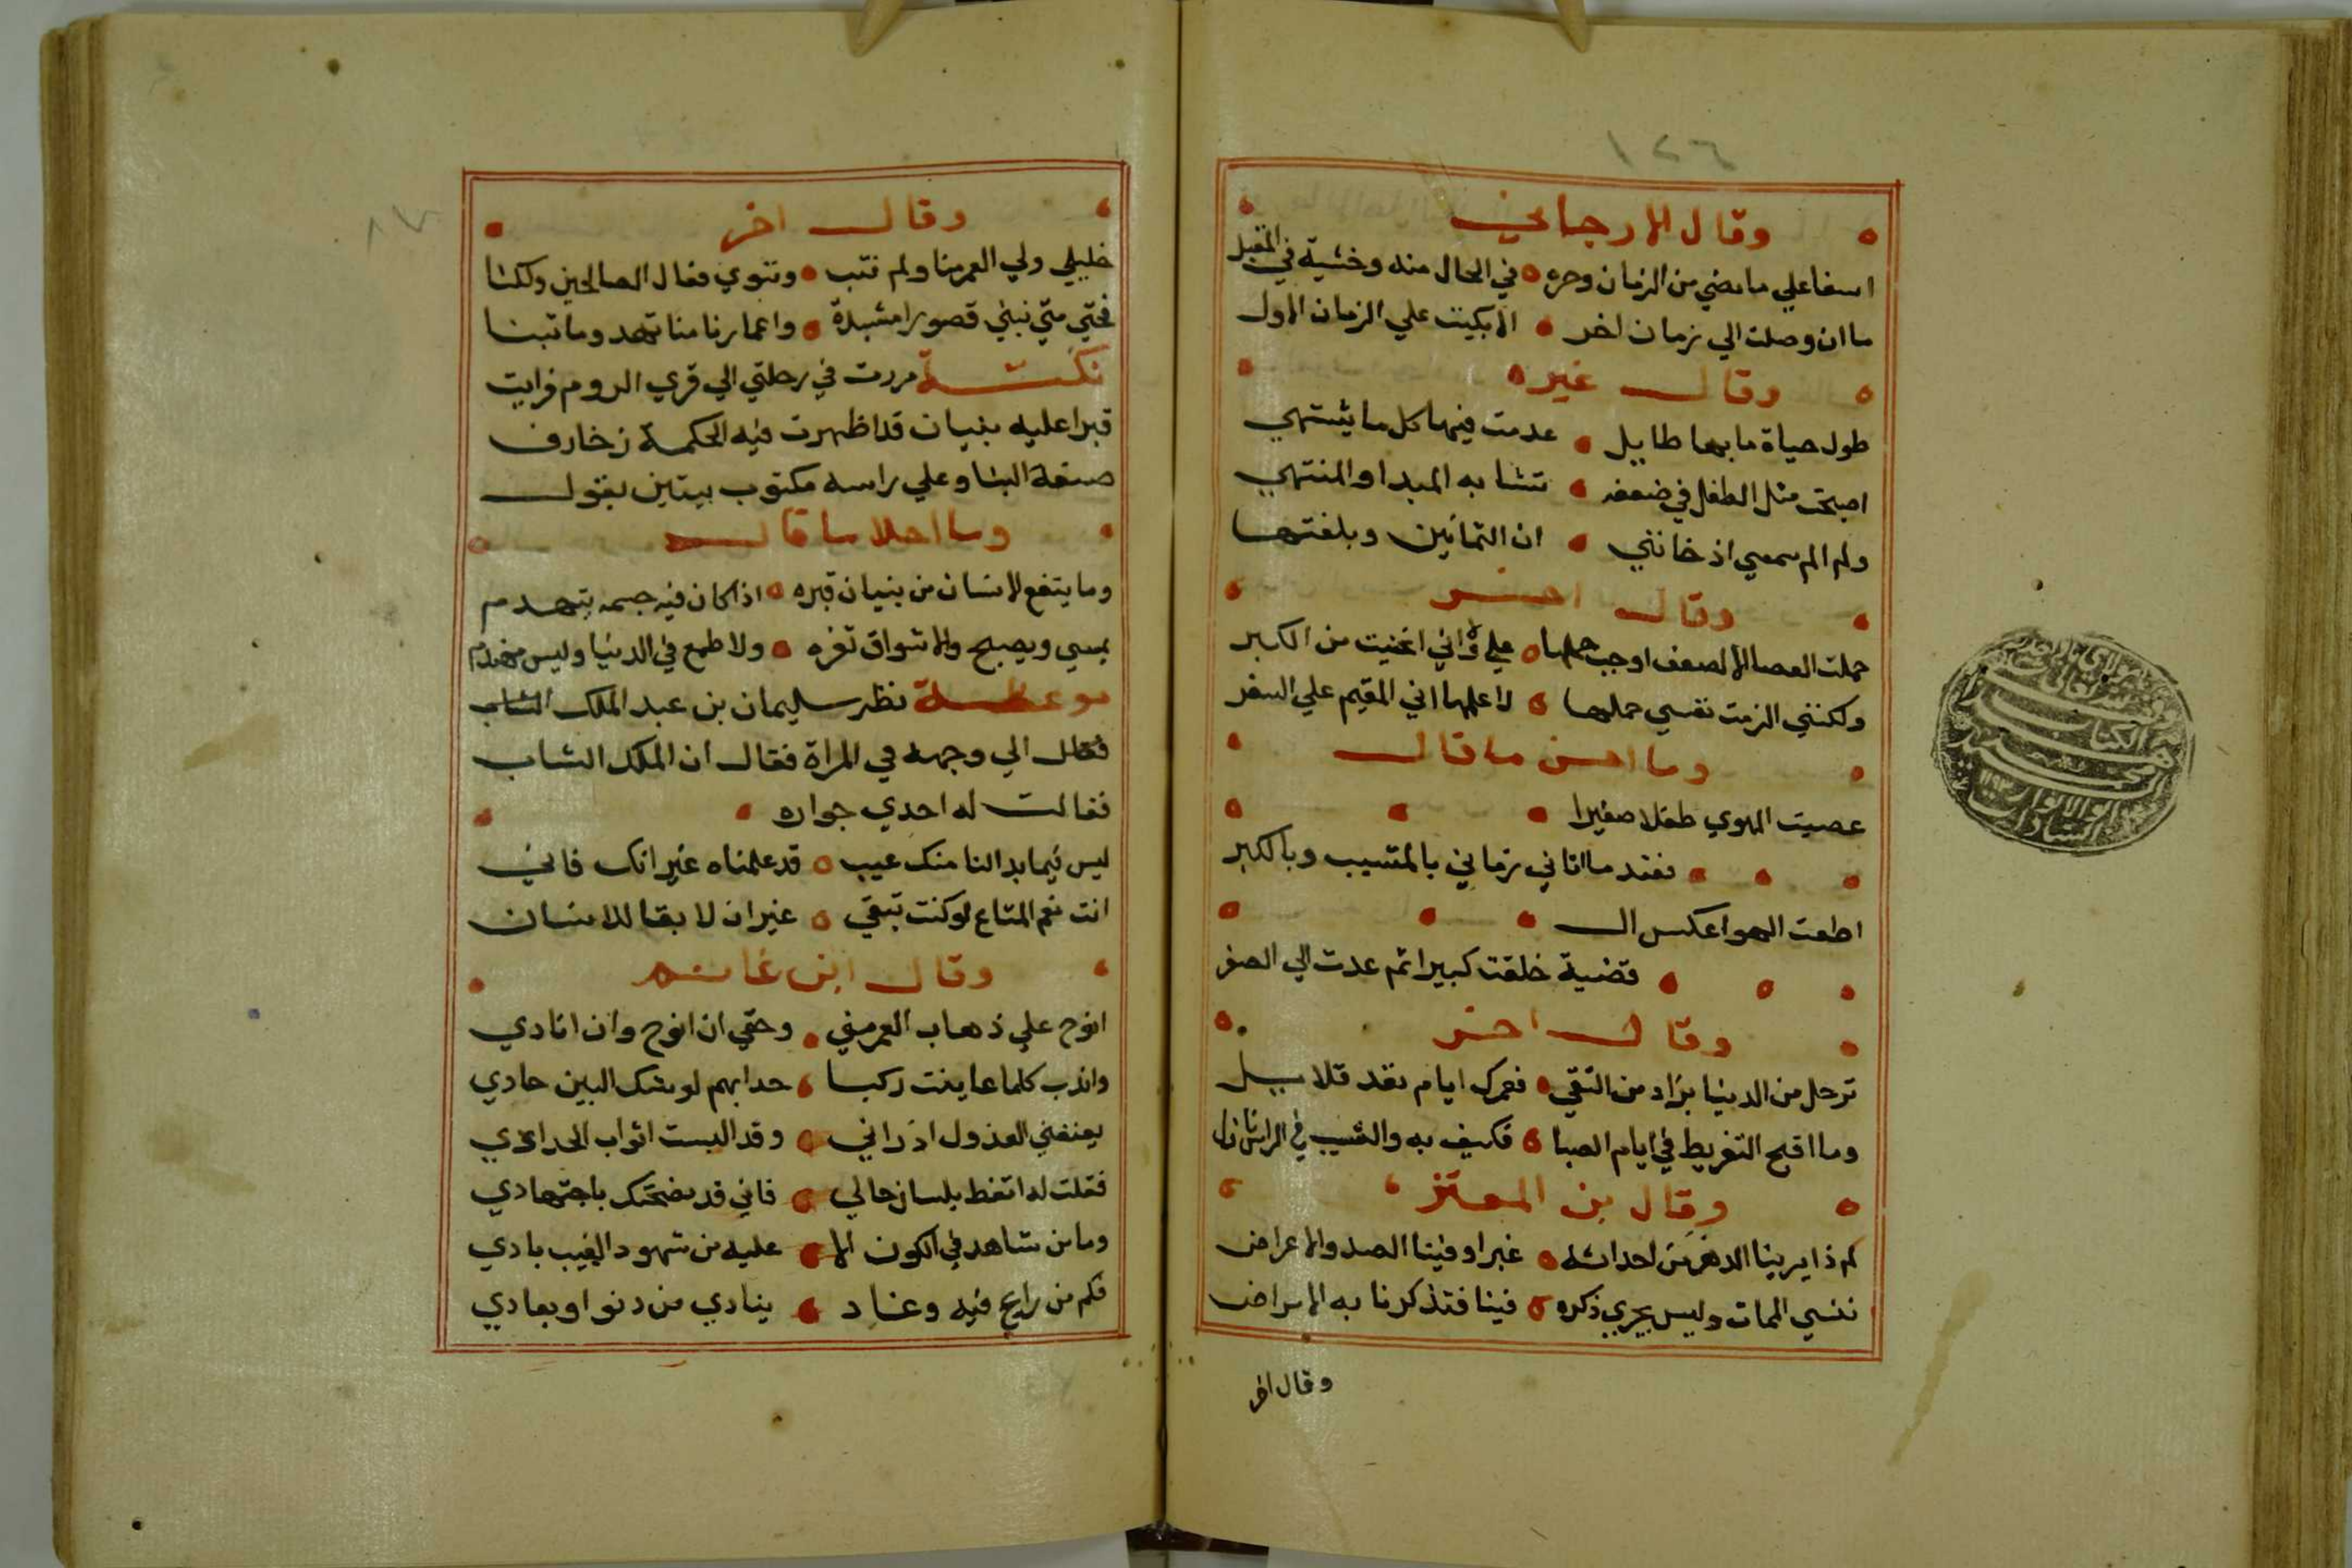 ١٢٦
وقال الارجاني
اسفا علي ما مضي من الزمان وحره في الحال منه وخشية في المقبل
ما ان وصلت الي زمان اخر الا بكيت علي الزمان الاول
وقال غيره
طول حياة ما بها طايل عدمت فيها كل ما يشتهي
اصبحت مثل الطفل في ضعفه تشابه المبدا والمنتهي
ولم الم سمعي اذ خانني ان الثمانين وبلغتها
وقال اخر
حملت العصا لا لضعف اوجب حملها علي ولا اني انحنيت من الكبر
ولكنني الزمت نفسي حملها لاعلمها اني المقيم علي السفر
وما احسن ما قال
عصيت الهوي طفلا صغيرا
فعند ما اتاني زماني بالمشيب وبالكبر
اطعت الهوا عكس ال
قضية خلقت كبيرا ثم عدت الي الصغر
وقال اخر
ترحل من الدنيا بزاد من التقي فعمرك ايام تعد قلايل
وما اقبح التفريط في ايام الصبا فكيف به والشيب في الراس نازل
وقال بن المعتز
كم ذا يرينا الدهر من احداثه غبرا وفينا الصد والاعراض
ننسي الممات وليس يجري ذكره فينا فتذكرنا به الامراض
وقال اخر
٨٧
وقال اخر
خليلي ولي العمر منا ولم نتب وننوي فعال الصالحين ولكنا
فحتي متي نبني قصورا مشيدة واعمارنا منا تهد وما تبنا
نكتة مررت في رحلتي الي قري الروم فرايت
قبرا عليه بنيان قد اظهرت فيه الحكمة زخارف
صنعة البنا وعلي راسه مكتوب بيتين يقول
وما احلا ما قال
وما ينفع الانسان من بنيان قبره اذا كان فيه جسمه يتهدم
يمسي ويصبح والاشواق تغره ولا طمع في الدنيا وليس
موعظة نظر سليمان بن عبد الملك الشاب
فقال الي وجهه في المراة فقال ان الملك الشاب
فقالت له احدي جواره
ليس فيما بدا لنا منك عيب قد علمناه غير انك فاني
انت نعم المتاع لو كنت تبقي غير ان لا بقا للانسان
وقال ابن غانم
انوح علي ذهاب العمر مني وحقي ان انوح وان انادي
واندب كلما عاينت ركبا حدا بهم لوشك البين حادي
يعنفني العذول اذ راني وقد البست اثواب الحدادي
فقلت له اتعظ بلسان حالي فاني قد نصحتك باجتهادي
وما من شاهد في الكون الا عليه من شهود الغيب بادي
فكم من رايح فيه وغاد ينادي من دنو او بعادي